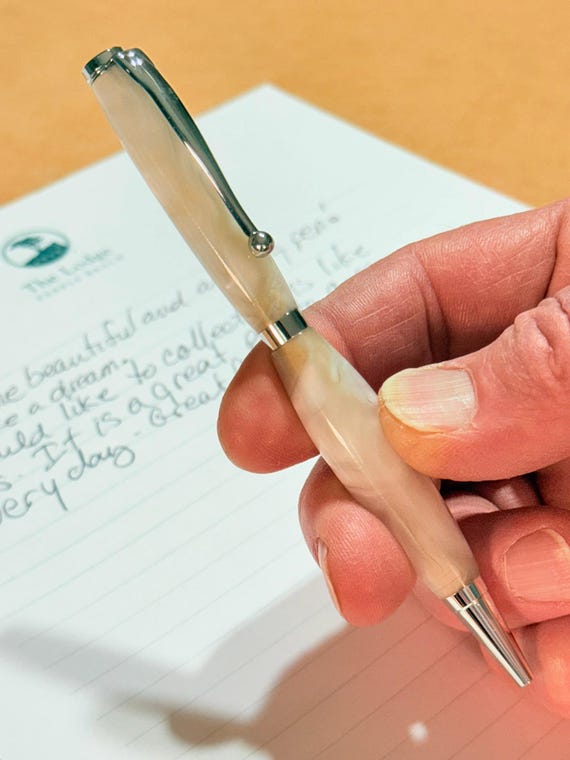 The Lodge
he beautiful and a y pen
e a dream.
uld like to collec s like
s. It is a great
very day. Great